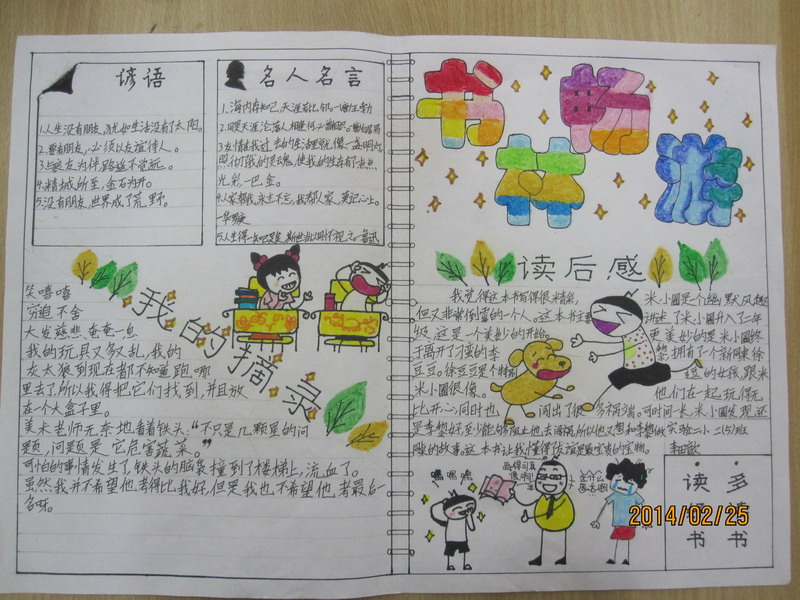 谚语
1.人生没有朋友,犹如生活没有了太阳。
2.要有朋友,必须以友谊待人。
3.与好友为伴,路遥不觉远。
4.精诚所至,金石为开。
5.没有朋友,世界成了荒野。
名人名言
1.海内存知己,天涯若比邻。—王勃
2.同是天涯沦落人,相逢何必曾相识。
3.友情在我过去的生活里就像一盏明灯,
照彻了我的灵魂,使我的生存有了点点
光彩—巴金。
4.人家帮我,永志不忘,我帮人家,莫记心上。
—华罗庚
5.人生得一知己足矣,斯世当以同怀视之—鲁迅
我的摘录
笑嘻嘻
穷追不舍
大发慈悲 奄奄一息
我的玩具又多又乱,我的
灰太狼到现在都不知道跑哪
里去了,所以我得把它们找到,并且放
在一个大盒子里。
美术老师无奈地看着铁头:“不只是几颗星的问
题,问题是它危害蔬菜。”
可怕的事情发生了,铁头的脑袋撞到了楼梯上,流血了。
虽然我并不希望他考得比我好,但是我也不希望他考最后一
名呀。
书
读后感
我觉得这本书写得很精彩, 米小圈是个幽默风趣
但又非常倒霉的一个人。这本书主要 讲述了米小圈升入了二年
级,这是一个美妙的开始。 更美妙的是米小圈终
于离开了刁蛮的李 黎,拥有了一个新同桌徐
豆豆。徐豆豆是个特别 的女孩,跟米
米小圈很像。 他们在一起玩得无
比开心,同时也 闯出了很多祸端。可时间一长,米小圈发现还
是李黎好,至少能够阻止他去闯祸,所以他又想和李黎做
实验二小二(5)班
的故事。这本书让我懂得了友谊是最宝贵的宝物。
嘿嘿嘿
画得可真
像啊!
为什么
读多
书 书
2014/02/25